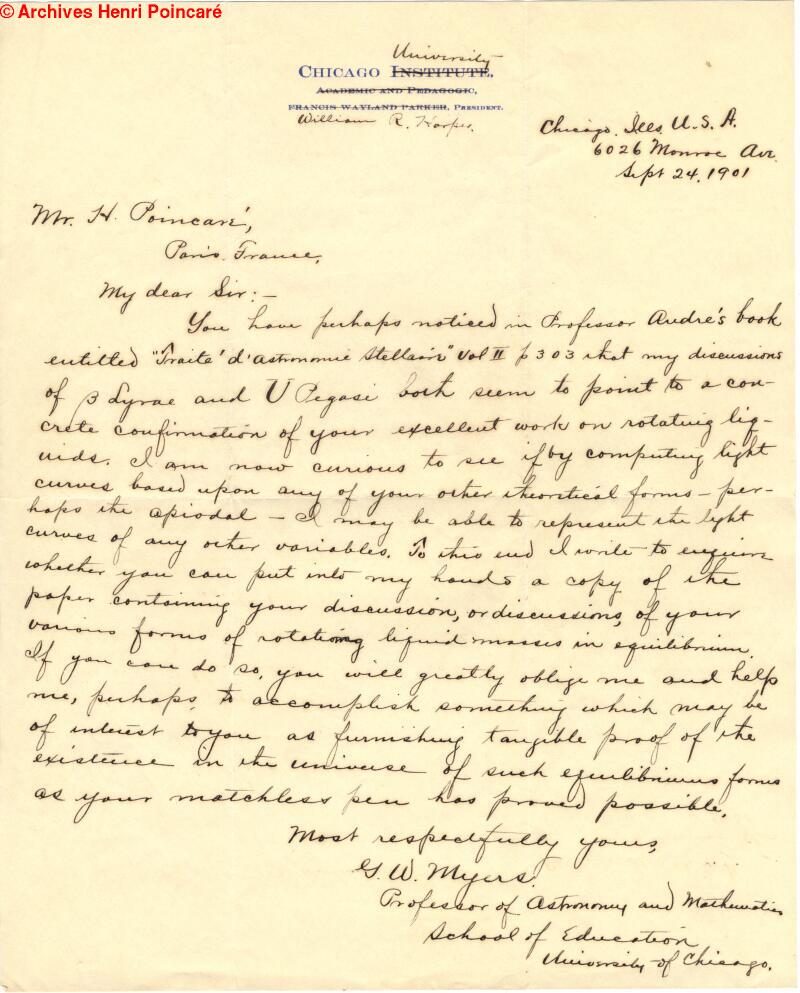 © Archives Henri Poincaré
University
CHICAGO INSTITUTE,
ACADEMIC AND PEDAGOGIC,
FRANCIS WAYLAND PARKER, PRESIDENT.
William R. Harper.
Chicago, Ills. U. S. A.
6026 Monroe Ave.
Sept 24, 1901
Mr. H. Poincaré,
Paris. France.
My dear Sir:-
You have perhaps noticed in Professor André's book
entitled "Traité d'Astronomie Stellaire" Vol II p 303 that my discussions
of β Lyrae and U Pegasi both seem to point to a con-
crete confirmation of your excellent work on rotating liq-
uids. I am now curious to see if by computing light
curves based upon any of your other theoretical forms – per-
haps the apiodal – I may be able to represent the light
curves of any other variables. To this end I write to enquire
whether you can put into my hands a copy of the
paper containing your discussion, or discussions, of your
various forms of rotating liquid masses in equilibrium.
If you can do so, you will greatly oblige me and help
me, perhaps, to accomplish something which may be
of interest to you as furnishing tangible proof of the
existence in the universe of such equilibriums forms
as your matchless pen has proved possible.
Most respectfully yours,
G. W. Myers.
Professor of Astronomy and Mathematics
School of Education
University of Chicago.